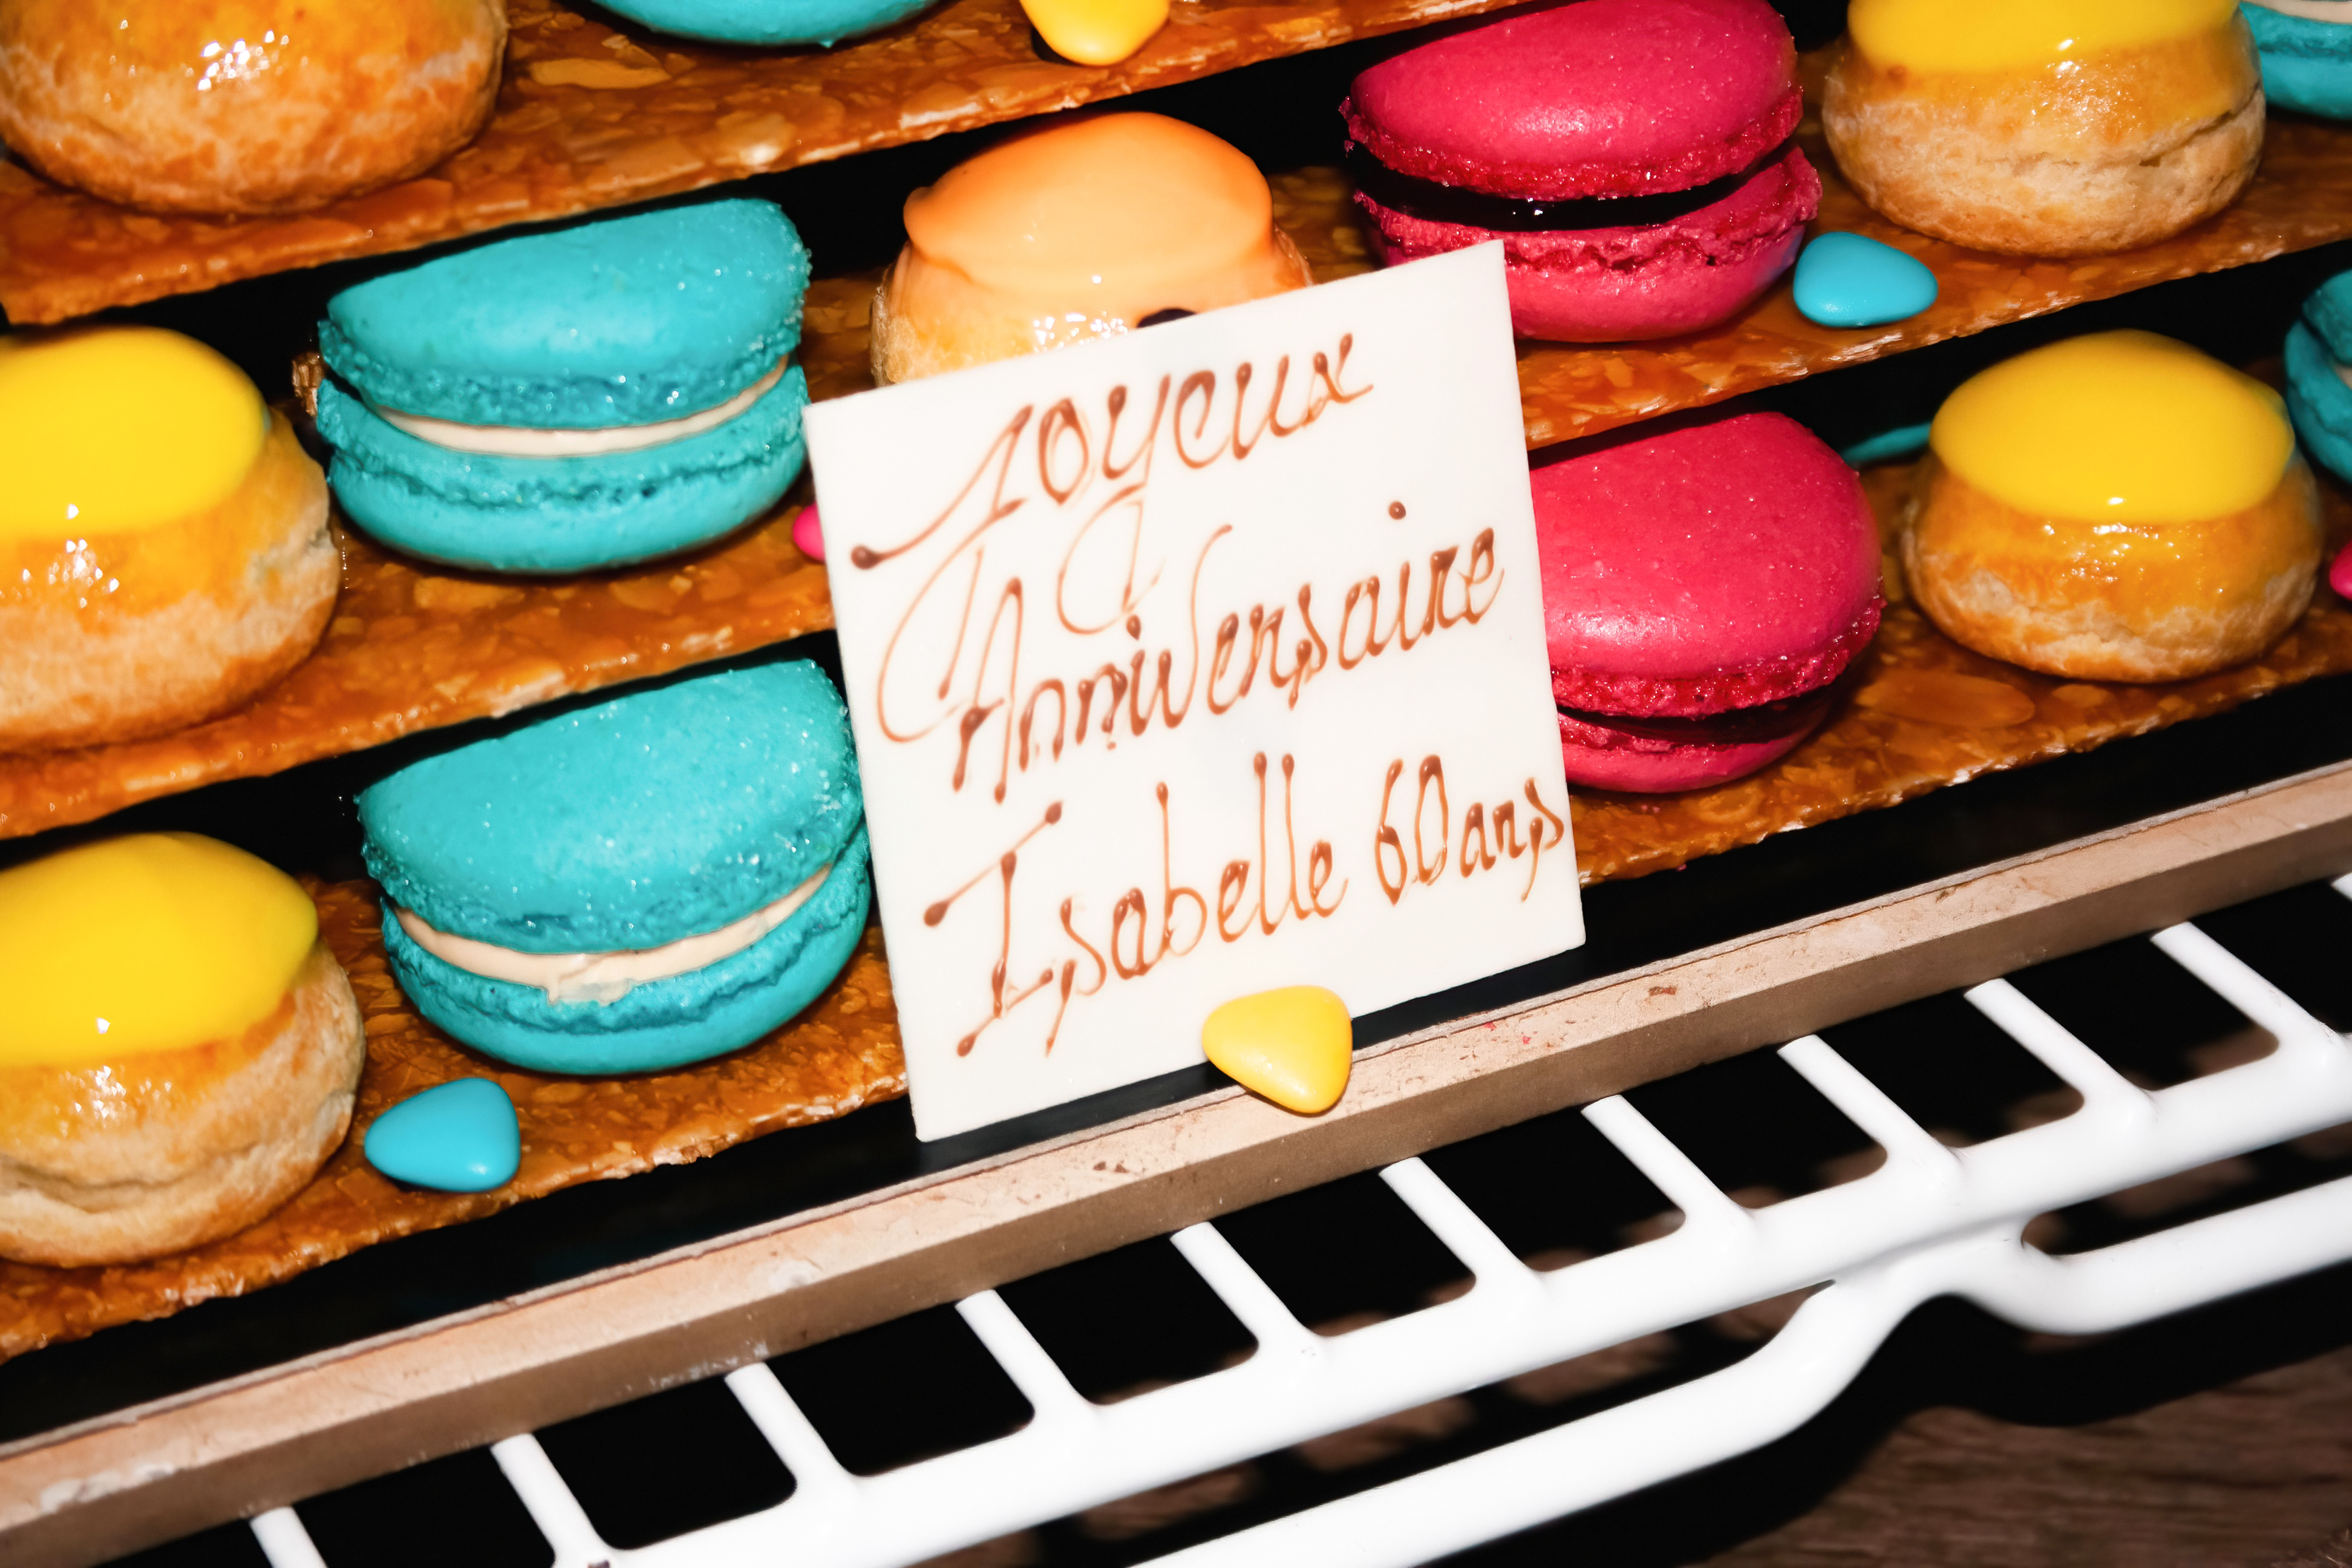 Joyeux
Anniversaire
Isabelle 60 ans